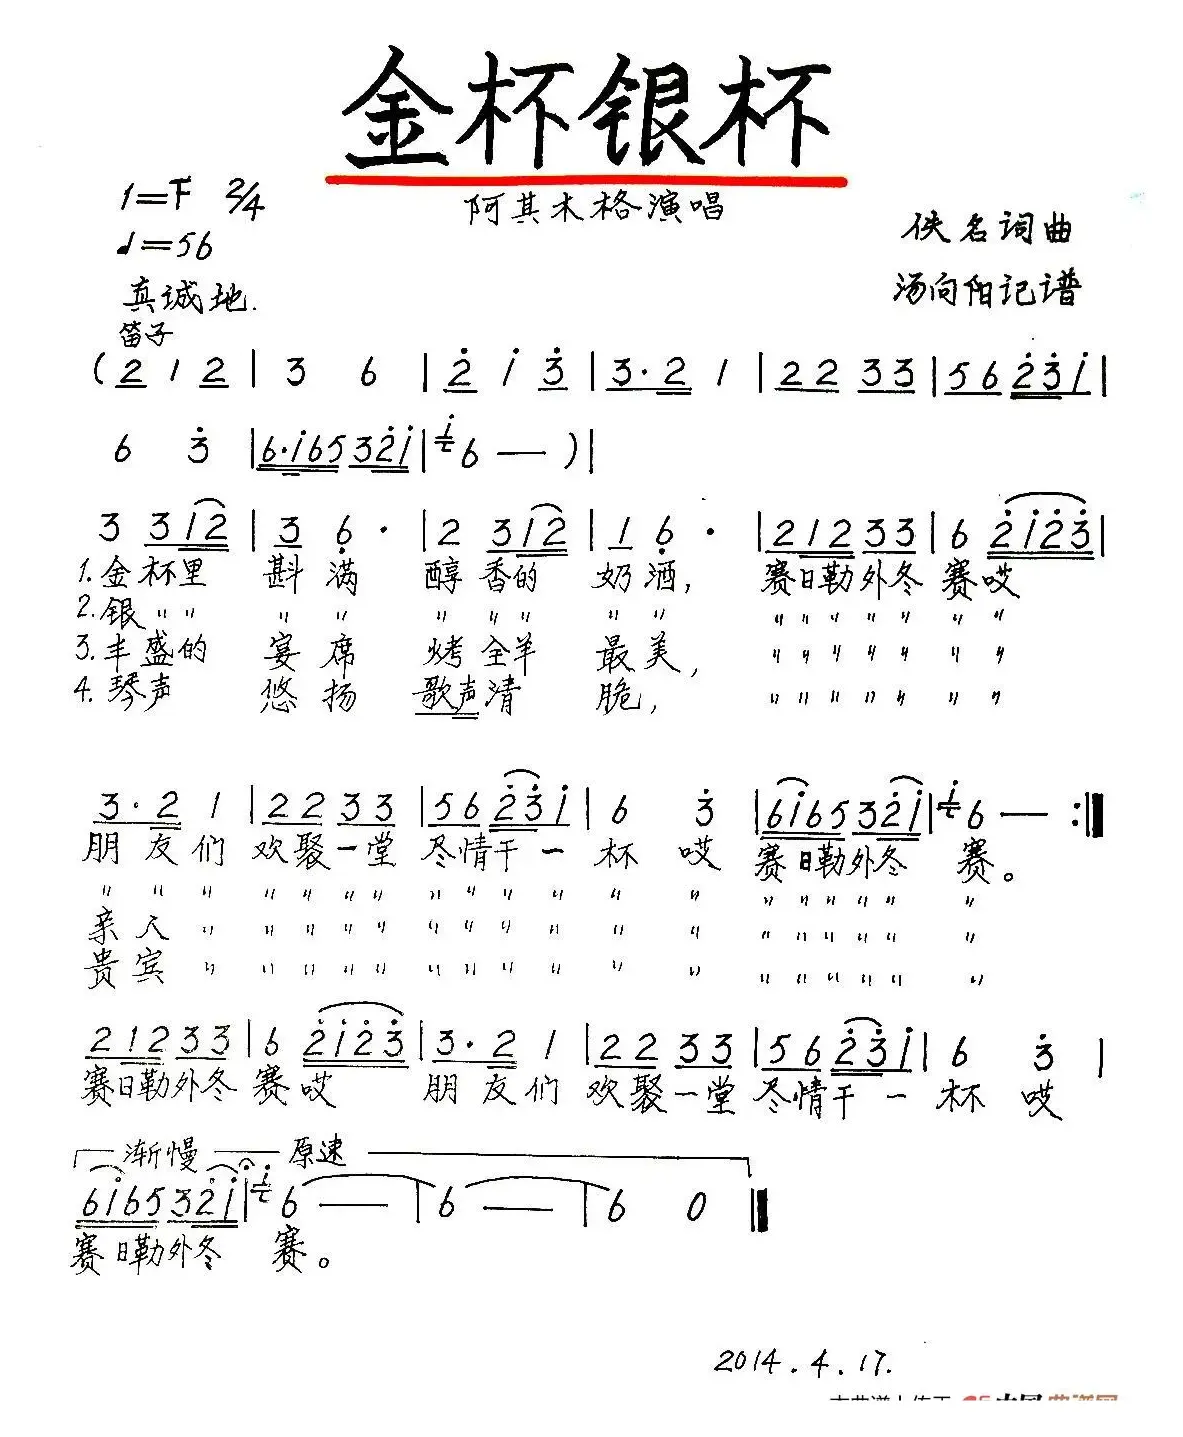 金杯银杯
阿其木格演唱
1=F 2/4
♩=56
佚名词曲
真诚地.
汤向阳记谱
笛子
(2 1 2 | 3 6 | 2̇ i 3̇ | 3·2 1 | 22 33 | 56 2̇3̇i |
6 3̇ | 6·i65 32̇i | 6 — ) |
3 312 | 3 6· | 2 312 | 1 6· | 212 33 | 6 2̇i2̇3̇ |
1.金杯里 斟满 醇香的 奶酒, 赛日勒外冬 赛哎
2.银〃〃 〃〃 〃〃〃 〃〃 〃〃〃〃〃 〃〃
3.丰盛的 宴席 烤全羊 最美, 〃〃〃〃〃 〃〃
4.琴声 悠扬 歌声清 脆, 〃〃〃〃〃 〃〃
3·2 1 | 22 33 | 56 2̇3̇i | 6 3̇ | 6i65 32̇i | 6 — :‖
朋友们 欢聚一堂 尽情干一 杯哎 赛日勒外冬 赛。
〃〃〃 〃〃〃〃 〃〃〃〃 〃〃 〃〃〃〃〃 〃
亲人〃 〃〃〃〃 〃〃〃〃 〃〃 〃〃〃〃〃 〃
贵宾〃 〃〃〃〃 〃〃〃〃 〃〃 〃〃〃〃〃 〃
212 33 | 6 2̇i2̇3̇ | 3·2 1 | 22 33 | 56 2̇3̇i | 6 3̇ |
赛日勒外冬 赛哎 朋友们 欢聚一堂 尽情干一 杯哎
渐慢 原速
6i65 32̇i | 6 — | 6 — | 6 0 ‖
赛日勒外冬 赛。
2014.4.17.